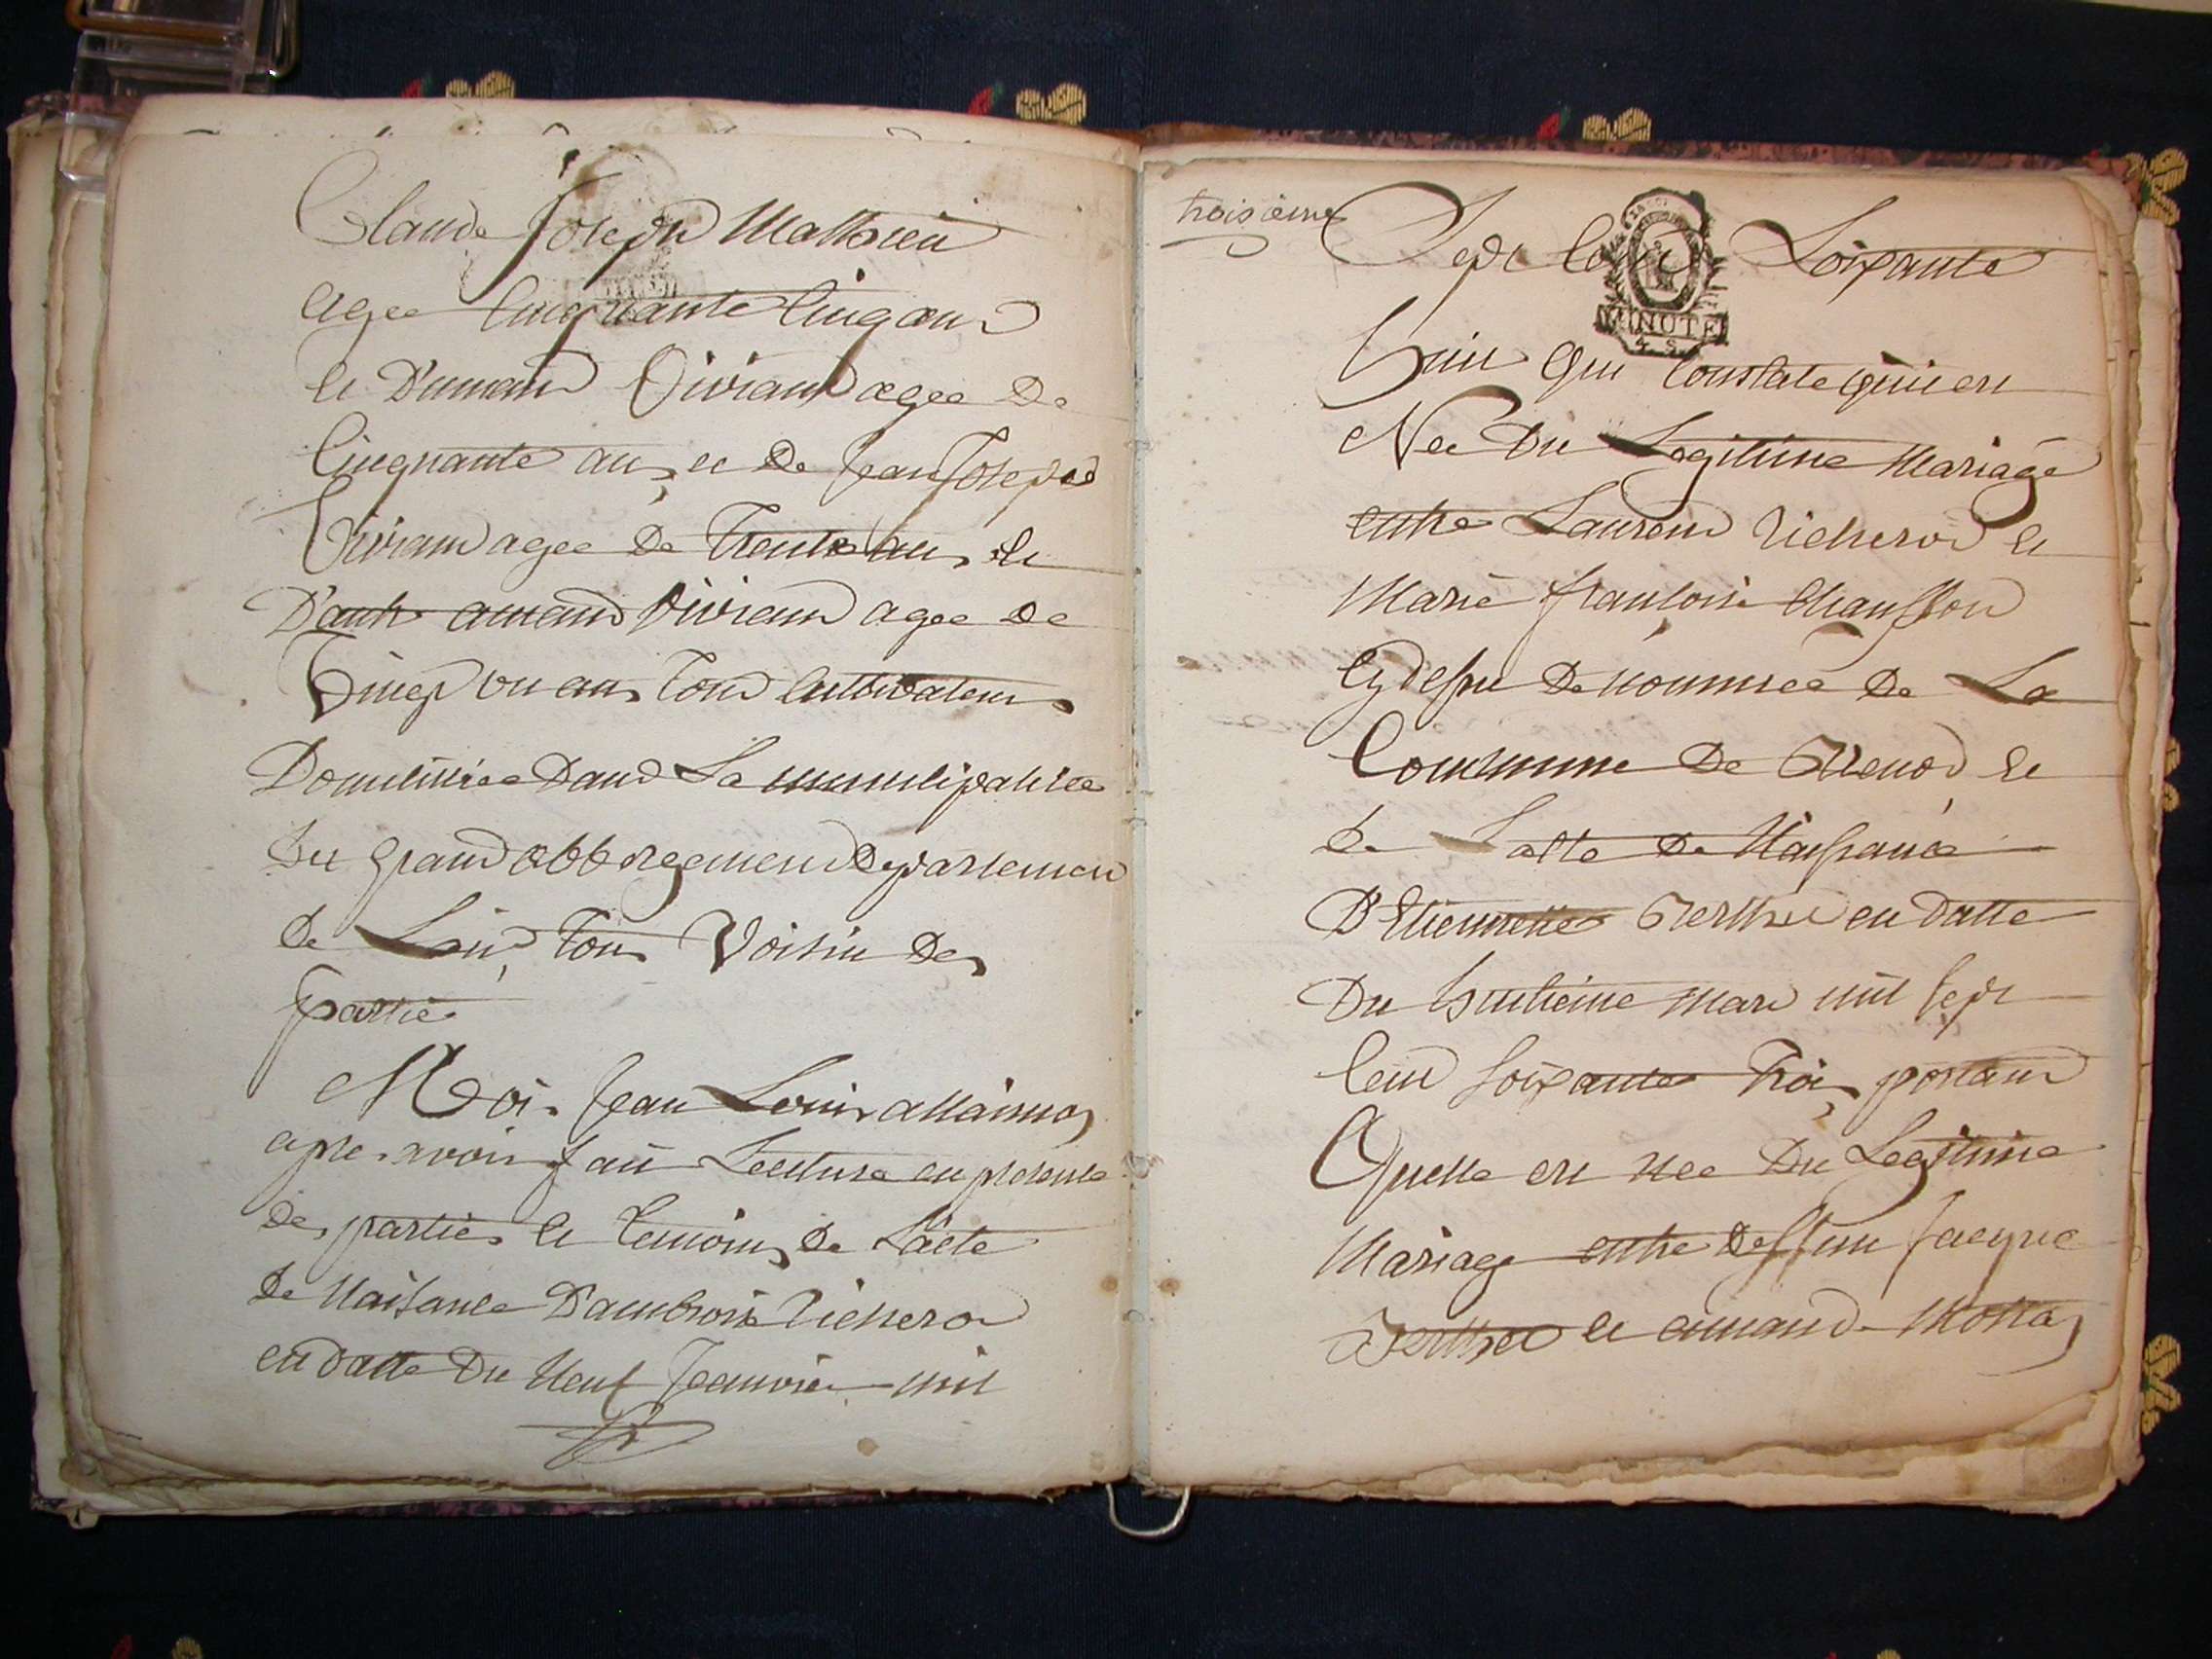 Claude Joseph Mathieu
agee Cinquante Cinq ans
et D'amand Viviand agee De
Cinquante ans et De Jean Joseph
Viviand agee De Trente ans et
D'autre amand Viviand agee De
Vingt un ans Tous Cultivateurs
Domiciliee Dans La municipalitee
Du grand abbergement Departement
De Lain, Tous Voisin Des
partie
Moi Jean Louis
apre avoir fait Lecture en presence
des parties et temoins De Lacte
De Naisance D'ambroise Richerod
en datte Du Neuf Jeanvier mil
troisieme
Sept Cent Soixante
MINUTE
4 S
huit qui Constate quil est
Nee Du Legitime Mariage
entre Laurend Richerod et
Marie francoise
Cy desus Denommee De La
Commune De et
De Lacte De Naisance
D'Etiennette Berthet en datte
Du huitieme mars mil sept
Cend Soixante Trois portand
Quelle est nee Du Legitime
Mariage entre Deffun Jacque
Berthet et